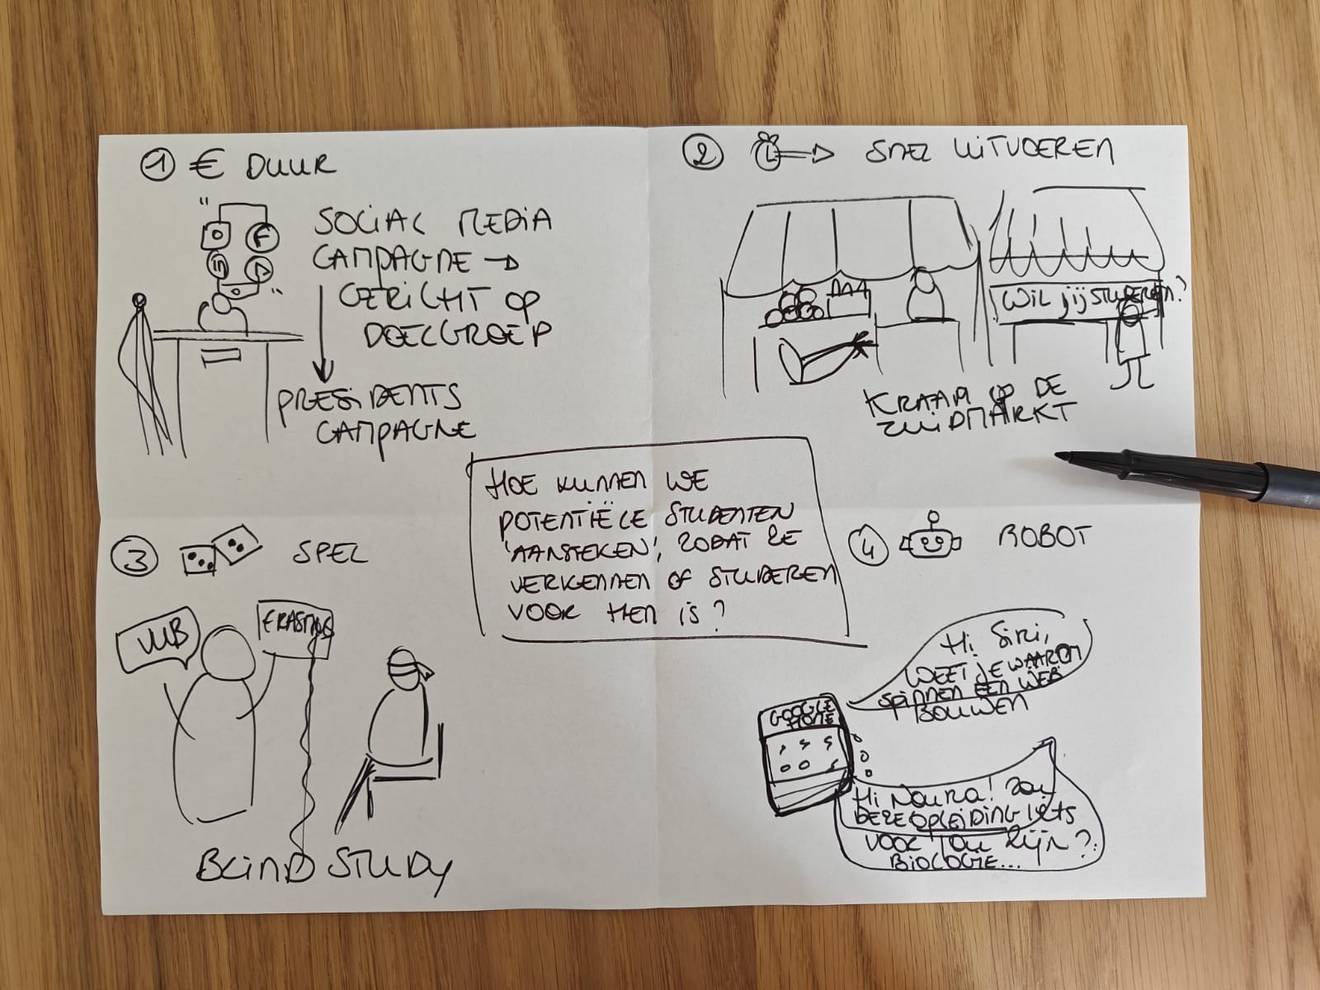 1 € DUUR
SOCIAL MEDIA
CAMPAGNE →
GERICHT OP
DOELGROEP
PRESIDENTS
CAMPAGNE
2 → SNEL UITVOEREN
WIL JIJ STUDEREN?
KRAAM OP DE
ZUIDMARKT
HOE KUNNEN WE
POTENTIËLE STUDENTEN
'AANSTEKEN', ZODAT ZE
VERKENNEN OF STUDEREN
VOOR HEN IS?
3 SPEL
VUB
ERASMUS
BLIND STUDY
4 ROBOT
Hi Siri,
WEET JE WAAROM
SPINNEN EEN WEB
BOUWEN
GOOGLE
HOME
Hi Noura! Zou
DEZE OPLEIDING IETS
VOOR JOU ZIJN?
BIOLOGIE...